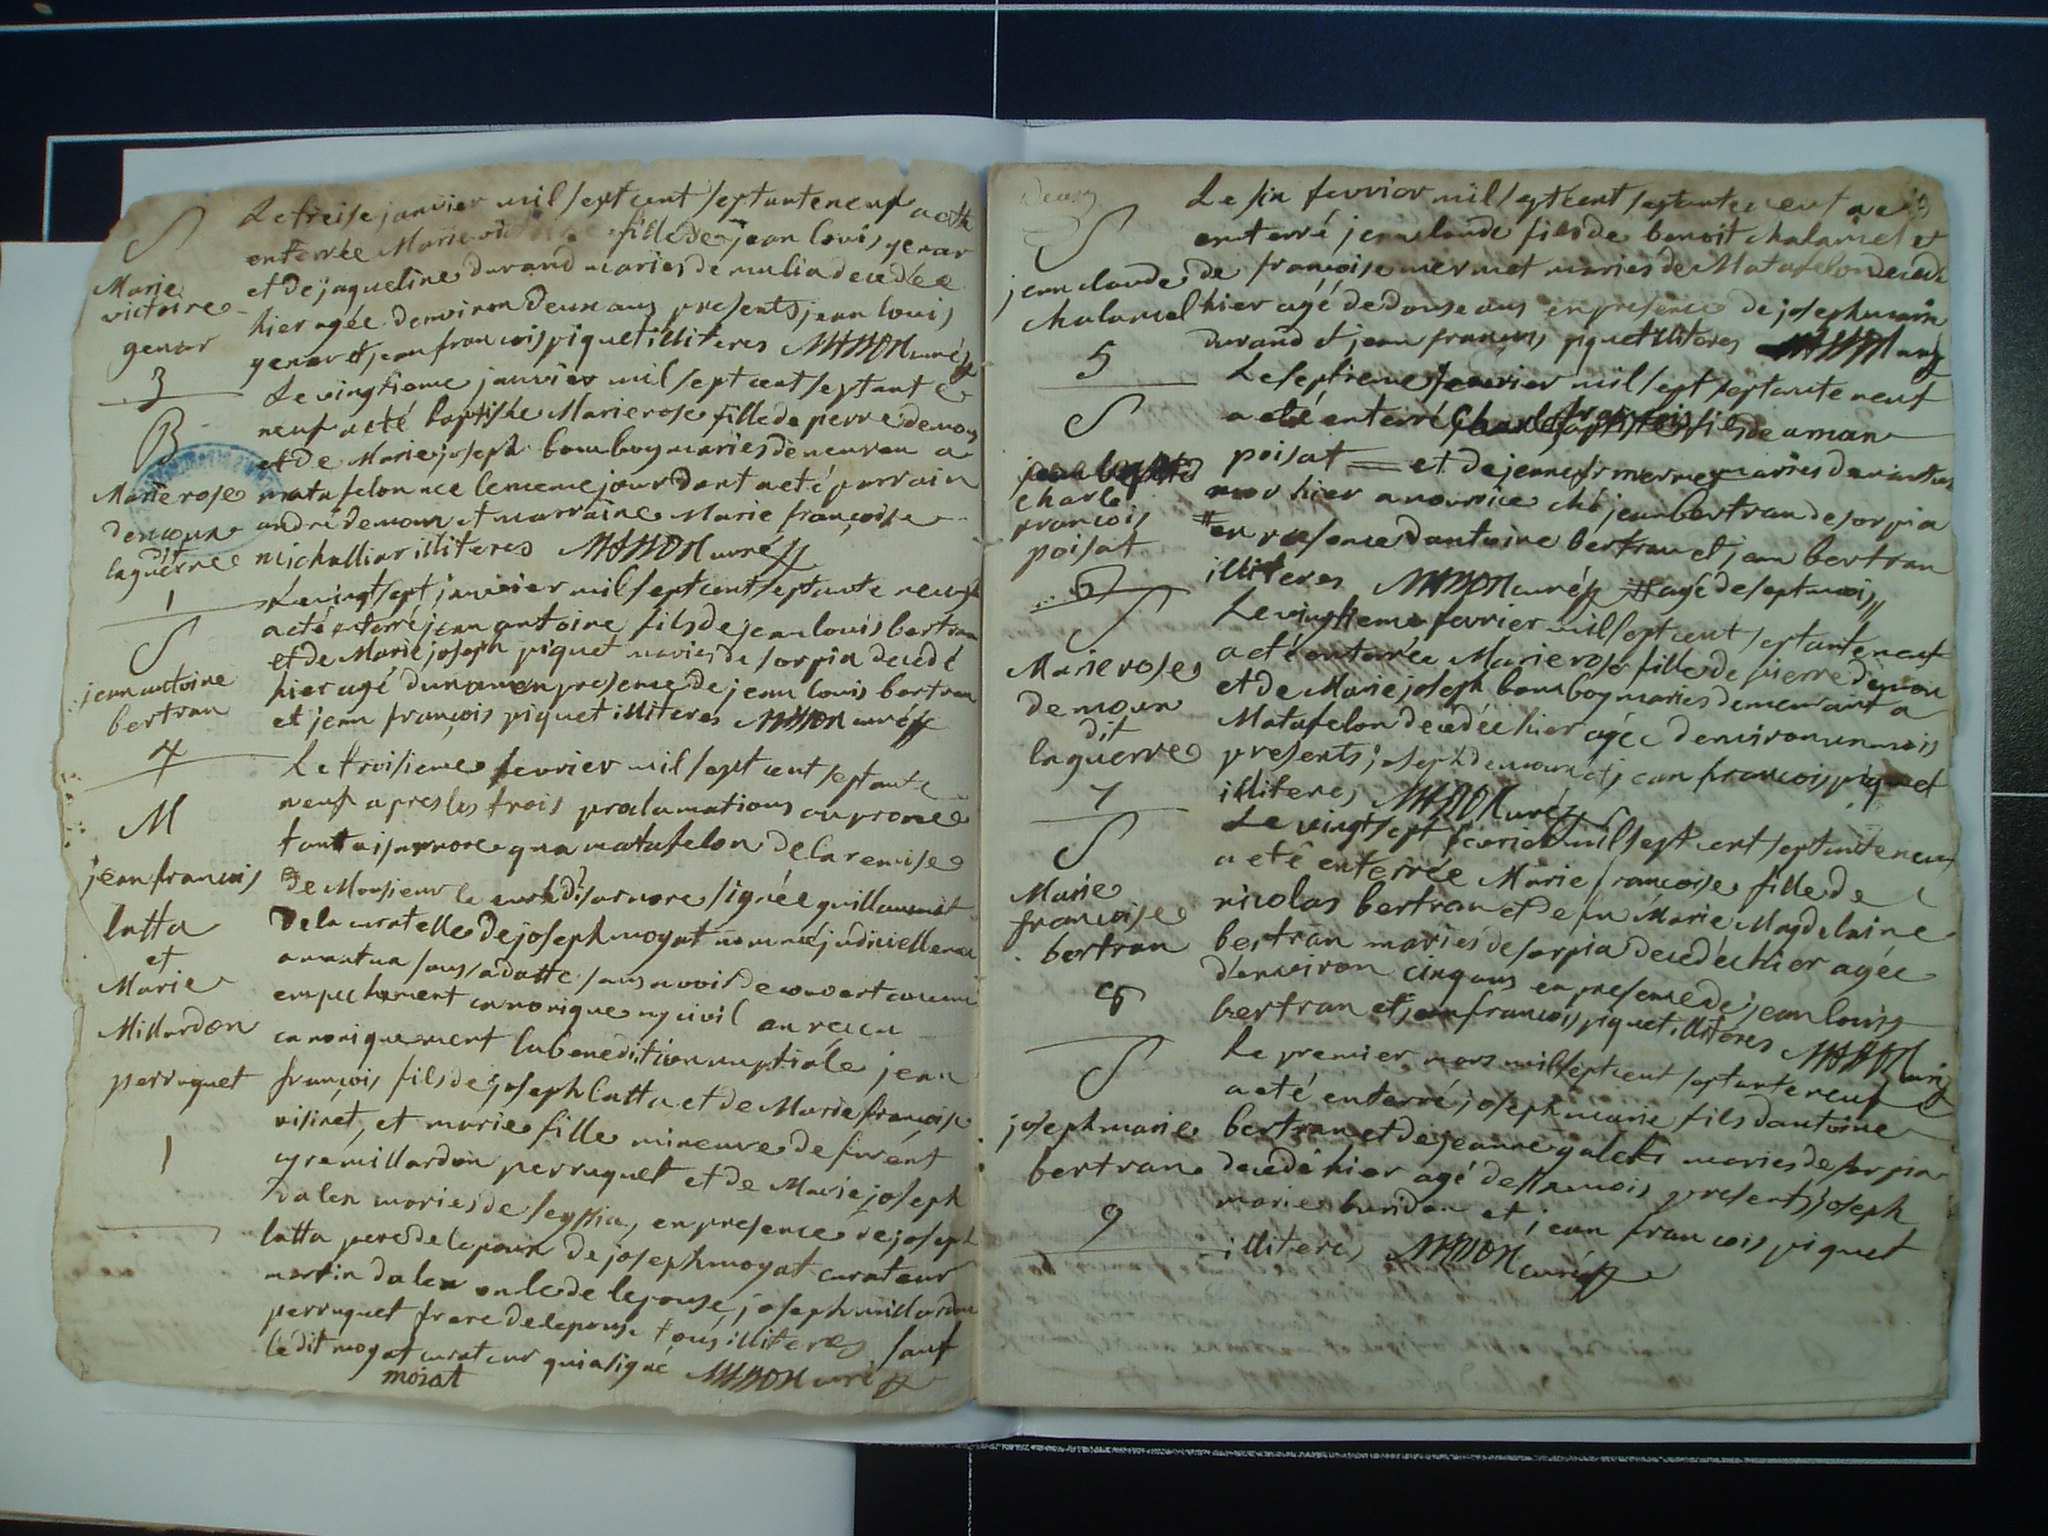 S
Marie
victoire
genar
3
Le treise janvier mil sept cent septante neuf a eté
enterrée Marie fille de jean louis genar
et de jaqueline durand mariés de mulia decedée
hier agée denviron deux ans presents jean louis
genar et jean francois piquet illiteres curé
B
Marie rose
demoux
dit
laguerre
1
Le vingtieme janvier mil sept cent septante
neuf a eté baptisée Marie rose fille de pierre demoux
et de Marie joseph bomboy mariés demeuran a
matafelon nee le meme jour dont a eté parrain
andré demoux et marraine Marie françoise
michallier illiteres curé
S
jean antoine
bertran
4
Le vingt sept janvier mil sept cent septante neuf
a eté enterré jean antoine fils de jean louis bertran
et de Marie joseph piquet mariés de sorpia decedé
hier agé dun an en presence de jean louis bertran
et jean françois piquet illiteres curé
M
jean francois
latta
et
Marie
Millardon
perruquet
1
Le troisieme fevrier mil sept cent septante
neuf apres les trois proclamations au prone
tant a isarnore qua matafelon de la remise
de Monsieur le curé disarnore signée guillaumot
de la curatelle de joseph moyat nommé judiciellement
sans adatte sans avoir decouvert aucun
empechement canonique ny civil on recu
canoniquement la benediction nuptiale jean
françois fils de joseph latta et de Marie françoise
visinet, et marie fille mineure de
millardon perruquet et de Marie joseph
dalex mariés de seyssia, en presence de joseph
latta pere de lepoux de joseph moyat curateur
martin dalex oncle de lepouse, joseph millardon
perruquet frere de lepouse tous illiteres sauf
ledit moyat curateur qui a signé curé
moiat
S
jean claude
chalamel
5
Le six fevrier mil sept cent septante neuf a eté
enterré jean claude fils de benoit chalamel et
de françoise mermet mariés de Matafelon decedé
hier agé de douse ans en presence de joseph marie
durand et jean françois piquet illiteres curé
S
charle
francois
poisat
6
Le septieme fevrier mil sept septante neuf
a eté enterré Charle françois fils de aman
poisat et de jeanne fr mermet mariés
mor hier a nourrice ché jean bertran de sorpia
# en presence dantoine bertran et jean bertran
illiteres curé # agé de sept mois
S
Marie rose
demoux
dit
laguerre
7
Le vingtieme fevrier mil sept cent septante neuf
a eté enterrée Marie rose fille de pierre demoux
et de Marie joseph bomboy mariés demeurant a
Matafelon decedée hier agée denviron un mois
presents joseph demoux et jean francois piquet
illiteres curé
S
Marie
françoise
bertran
8
Le vingt sept fevrier mil sept cent septante neuf
a eté enterrée Marie francoise fille de
nicolas bertran et de feu Marie Magdelaine
bertran mariés de sorpia decedée hier agée
denviron cinq ans en presence de jean louis
bertran et jean francois piquet illiteres curé
S
joseph marie
bertran
9
Le premier mars mil sept cent septante neuf
a eté enterré joseph marie fils dantoine
bertran et de jeanne galet mariés de sorpia
decedé hier agé de six mois presents joseph
marie buridon et jean francois piquet
illiteres curé